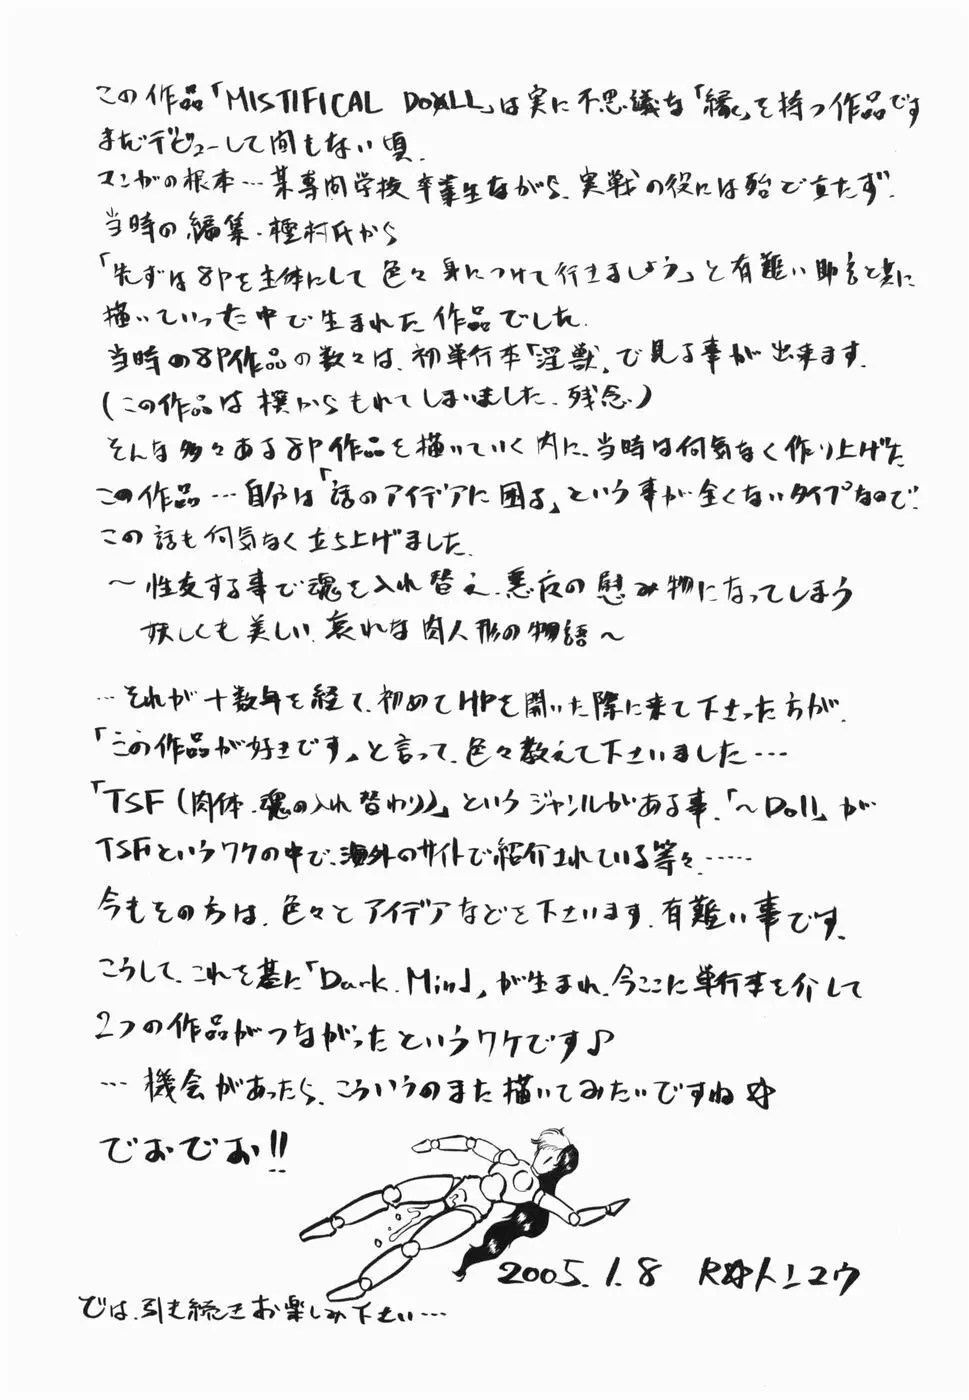 この作品「MISTIFICAL DOLL」は実に不思議な「縁」を持つ作品です
まだデビューして間もない頃、
マンガの根本…某専門学校卒業生ながら、実戦の役には殆ど立たず、
当時の編集・種村氏から
「先ずは8Pを主体にして色々身につけて行きましょう」と有難い助言と共に
描いていった中で生まれた作品でした。
当時の8P作品の数々は、初単行本「淫獣」で見る事が出来ます。
(この作品は撰からもれてしまいました、残念)
そんな多々ある8P作品を描いていく内に、当時は何気なく作り上げた
この作品…自分は「話のアイデアに困る」という事が全くないタイプなので、
この話も何気なく立ち上げました。
～性交する事で魂を入れ替え、悪店の慰み物になってしまう
妖しくも美しい、哀れな肉人形の物語～
…それが十数年を経て、初めてHPを開いた際に来て下さった方が、
「この作品が好きです」と言って、色々教えて下さいました…
「TSF(肉体・魂の入れ替わり)」というジャンルがある事、「～Doll」が
TSFというワケの中で、海外のサイトで紹介されている等々……
今もその方は、色々とアイデアなどを下さいます。有難い事です。
こうして、これを基に「Dark Mind」が生まれ、今ここに単行本を介して
2つの作品がつながったというワケです♪
…機会があったら、こういうのまた描いてみたいですね☆
でおでお!!
2005.1.8
では、引き続きお楽しみ下さい…